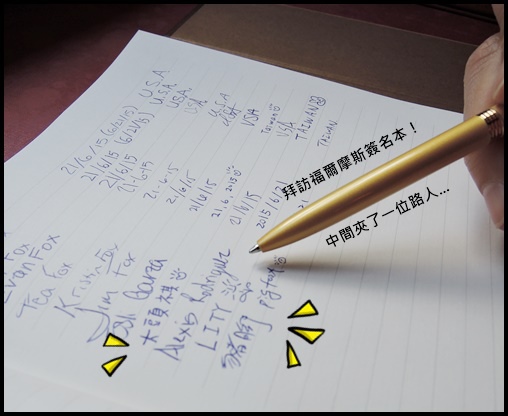 拜訪福爾摩斯簽名本！
中間夾了一位路人...
U.S.A
U.S.A.
USA
USA
U.S.A
USA
Taiwan
USA
TAIWAN
TAIWAN
21/6/15 (6/21/15)
21/6/15 (6/21/15)
21/6/15
21-6-15
21-6-15
21/6/15
21/6/15
21.6.2015
21/6/15
2015/6/21
Fox
Evan Fox
Tea Fox
Kristin Fox
Jim Fox
Garza
大頭祺
Alexis Rodriguez
LITY